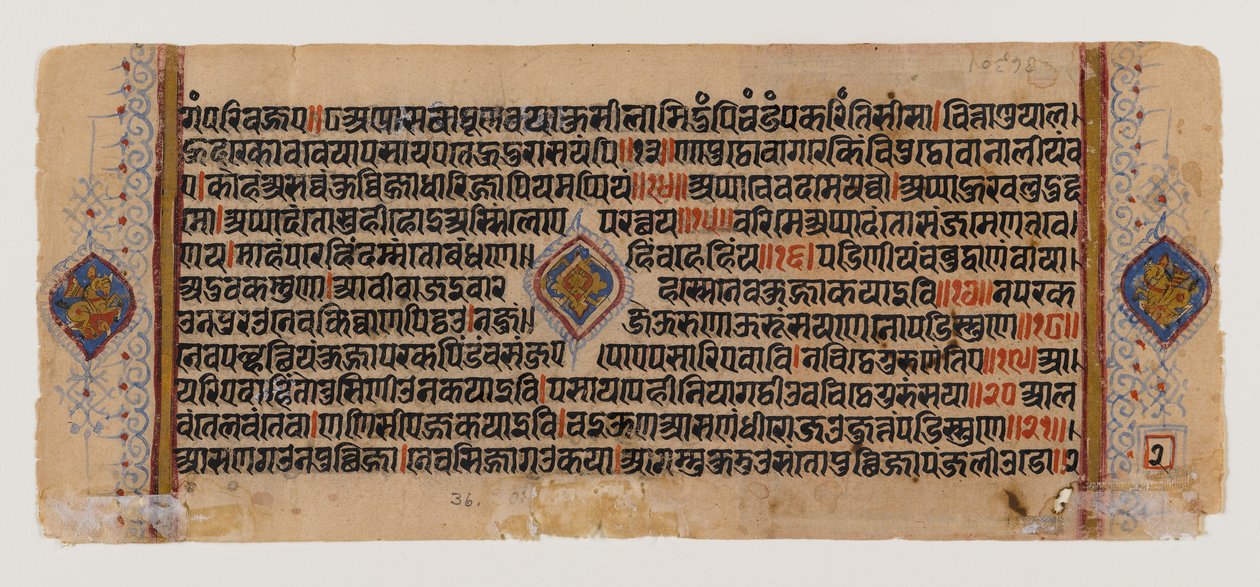 गं परिवज्जए॥ अणासवा थूलवया कुसीला मिउंपि चंडं पकरिंति सीसा। चित्ताणुया ल
पसायए ते हु दुरासयंपि॥१३॥ णापुट्ठो वागरे किंचि पुट्ठो वा नालीयं व
ए। कोहं असच्चं कुव्विज्जा धारिज्जा पियमप्पियं॥१४॥ अप्पा चेव दमेयव्वो। अप्पा हु खलु दुद्द
मो। अप्पा दंतो सुही होइ अस्सिं लोए परत्थ य॥१५॥ वरि मे अप्पा दंतो संजमेण तवे।
ण य। माहं परेहिं दम्मंतो बंधणे॥ हिं वहेहिं य॥१६। पडिणीयं च बुद्धाणं वाया।
अदुव कम्मुणा। आवी वा जइ वा र हस्से नेव कुज्जा कयाइ वि॥१७॥ न पक्ख
उ न पुरउ नेव किच्चाण पिट्ठउ। न जुं॥ जे ऊरुणा ऊरुं सयणे नो पडिस्सुणे॥१८॥
नेव पल्हत्थियं कुज्जा पक्खपिंडं व संजए पाए पसारिए वावि। न चिट्ठे गुरुणंतिए॥१९॥ आ।
यरिएहिं वाहिंतो तुसिणीउ न कयाइ वि। पसायपेही नियागट्ठी उवचिट्ठे गुरुं सया॥२० आल
वंते लवंते वा। ण णिसीएज्ज कयाइ वि। चइऊण आसणं धीरो जउ जुत्तं पडिस्सुणे॥२१॥।
आसणगउ न पुच्छिज्जा। नेव सिज्जागउ कया। आगम्मुक्कुडुउ संतो पुच्छिज्जा पंजलीउडो॥२
२
36.